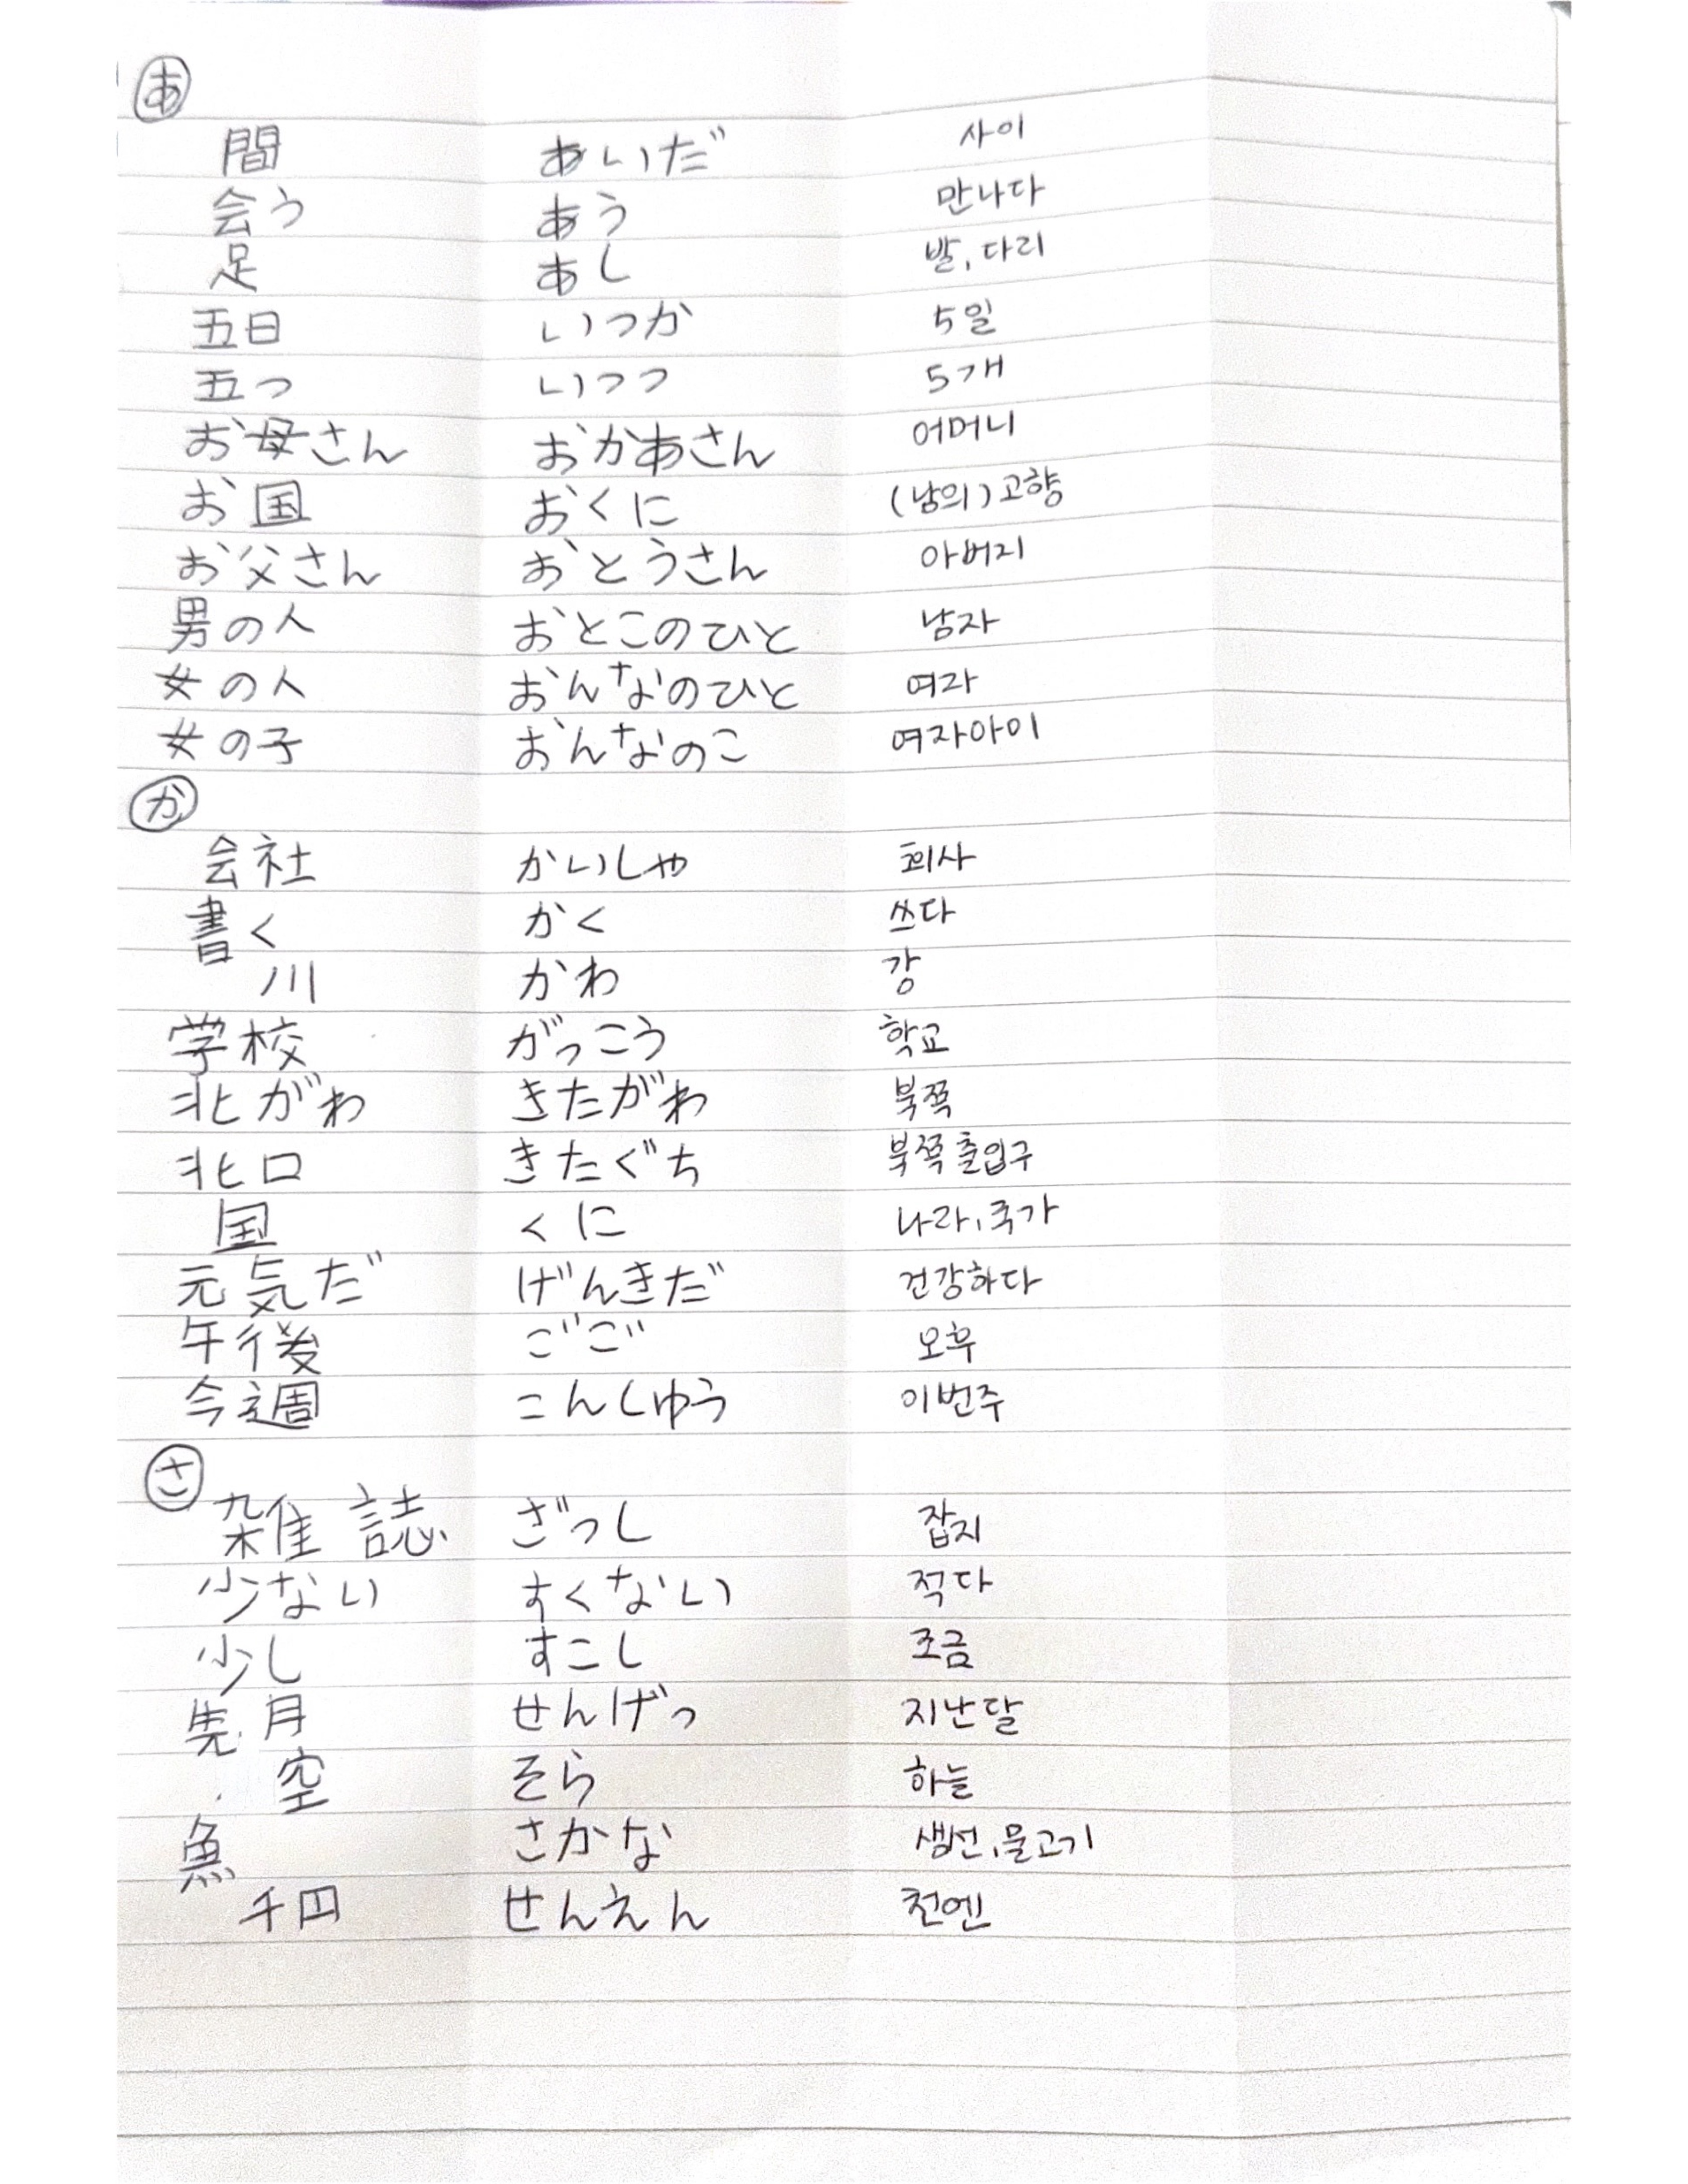 あ
間 あいだ 사이
会う あう 만나다
足 あし 발, 다리
五日 いつか 5일
五つ いつつ 5개
お母さん おかあさん 어머니
お国 おくに (남의) 고향
お父さん おとうさん 아버지
男の人 おとこのひと 남자
女の人 おんなのひと 여자
女の子 おんなのこ 여자아이
か
会社 かいしゃ 회사
書く かく 쓰다
川 かわ 강
学校 がっこう 학교
北がわ きたがわ 북쪽
北口 きたぐち 북쪽 출입구
国 くに 나라, 국가
元気だ げんきだ 건강하다
午後 ごご 오후
今週 こんしゅう 이번주
さ
雑誌 ざっし 잡지
少ない すくない 적다
少し すこし 조금
先月 せんげつ 지난달
空 そら 하늘
魚 さかな 생선, 물고기
千円 せんえん 천엔